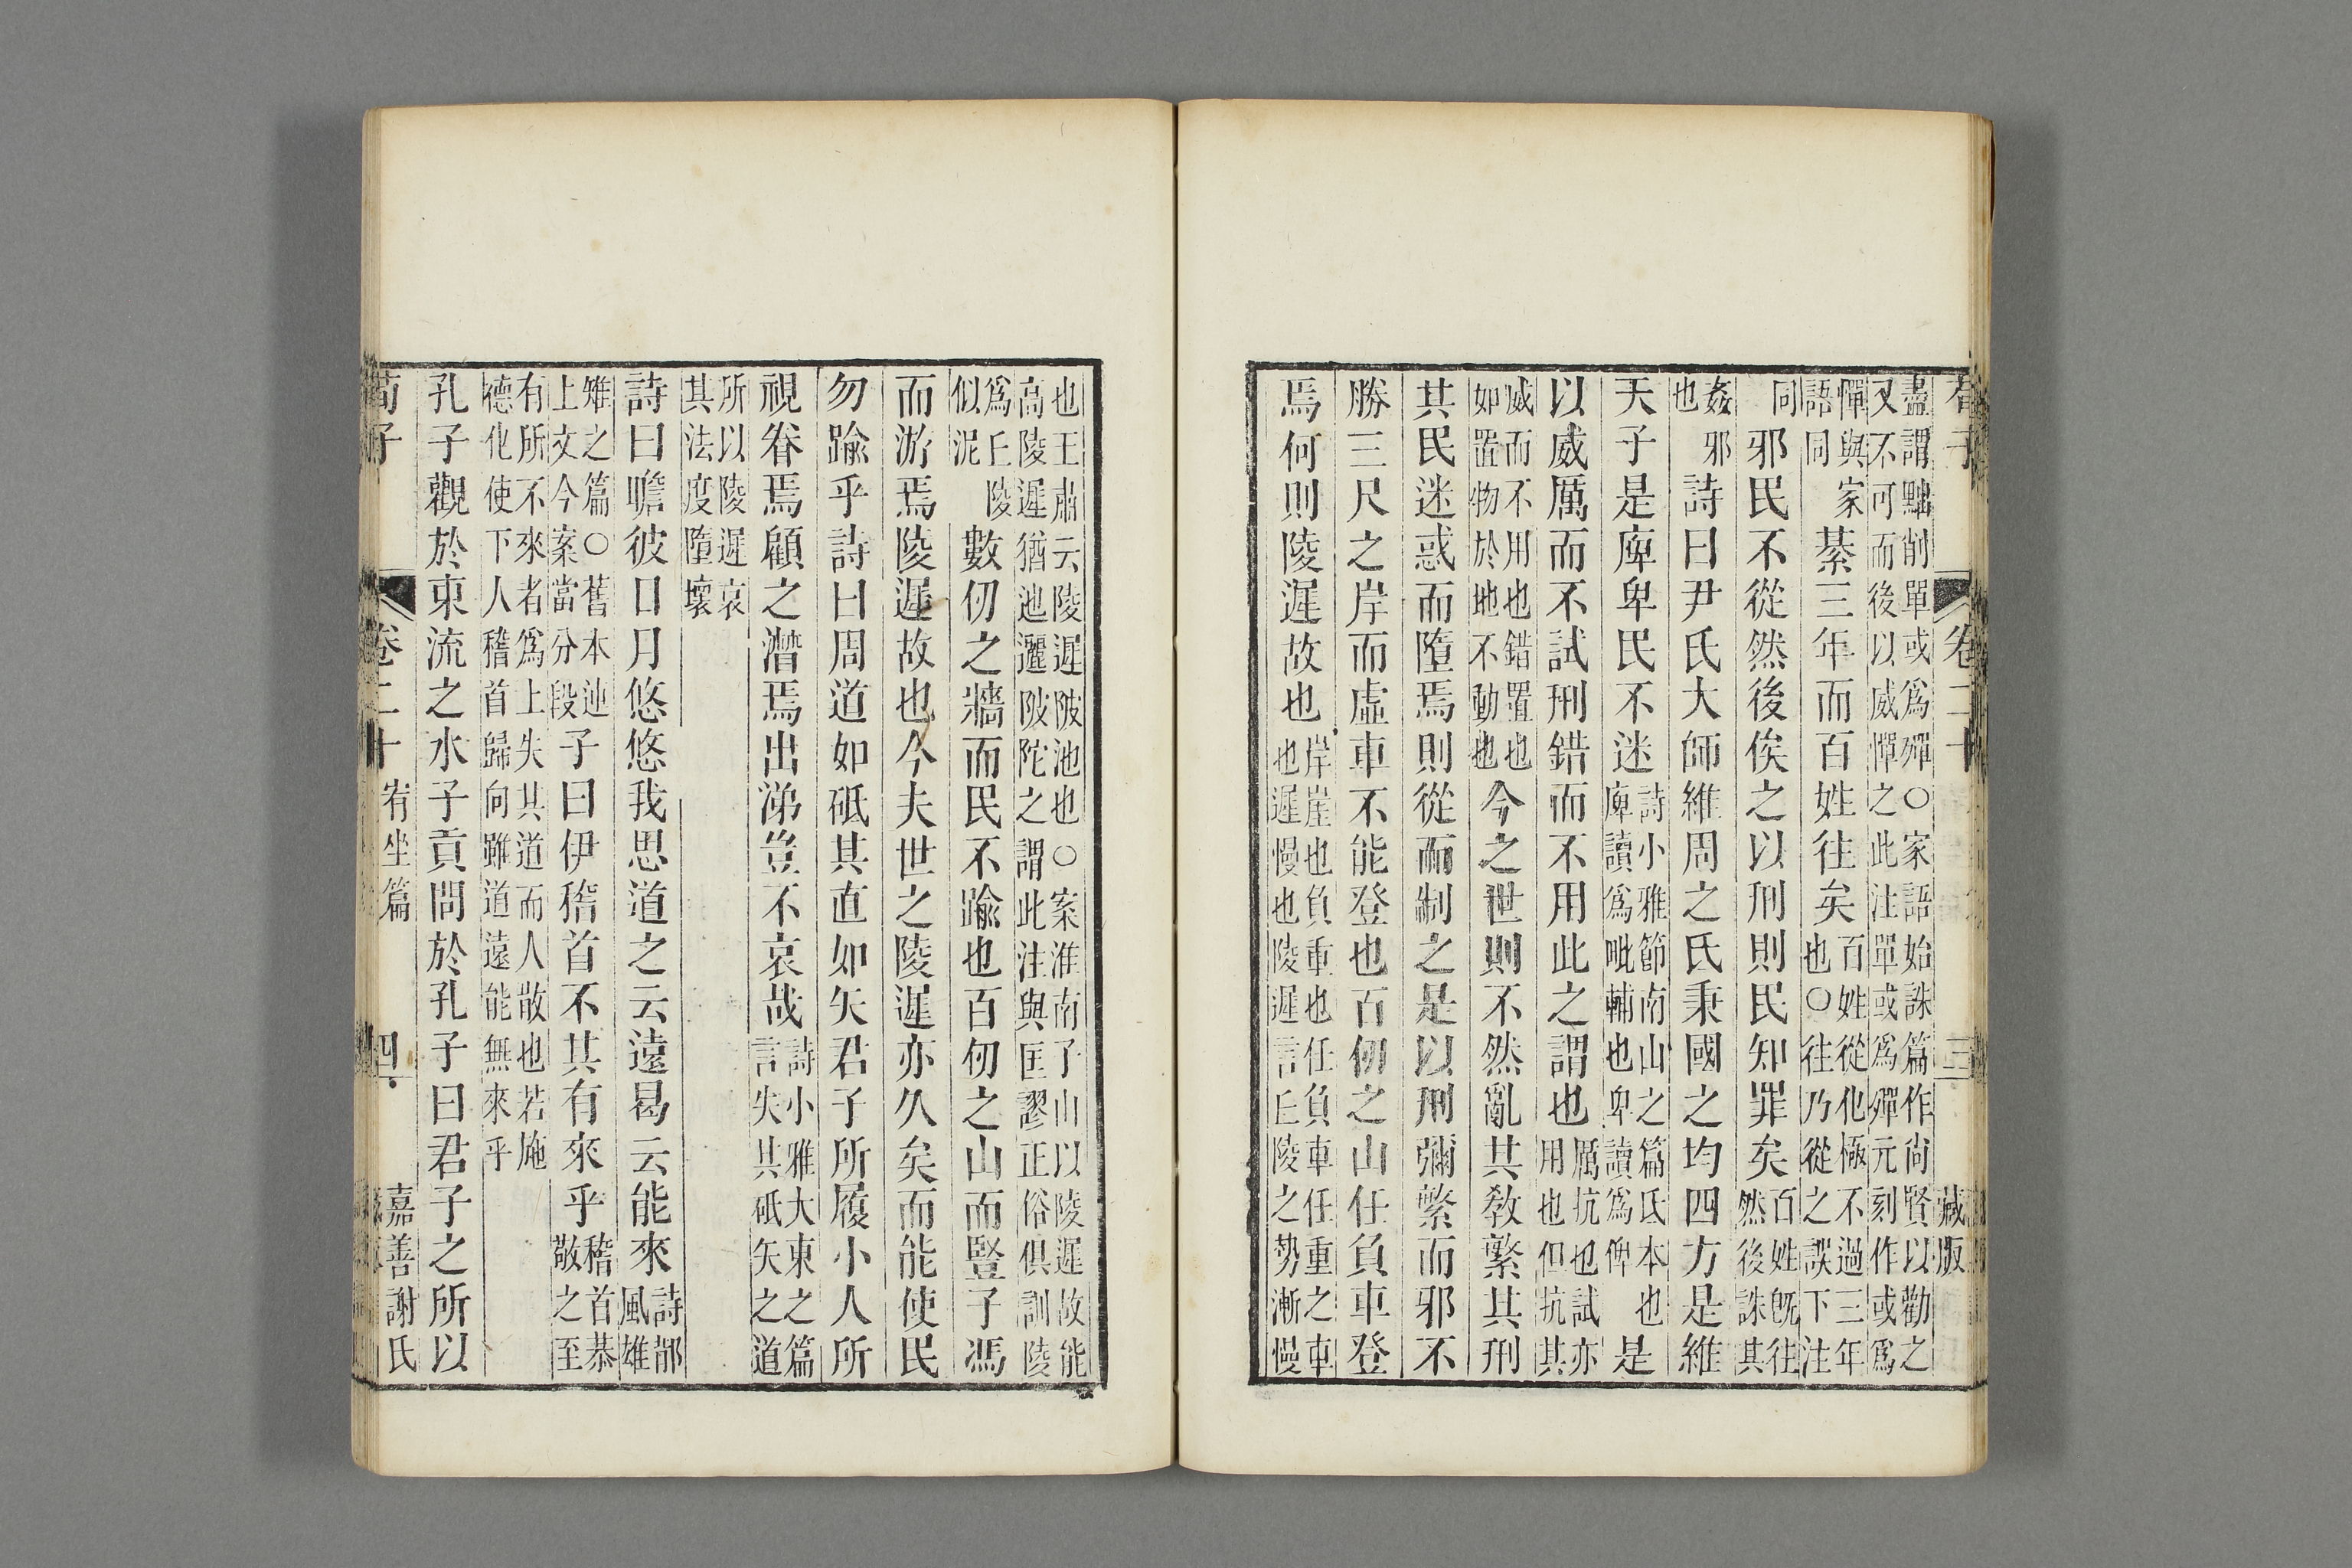 荀子 卷二十 三 藏版
盡謂黜削單或爲殫○家語始誅篇作尚賢以勸之
又不可而後以威憚之此注單或爲殫元刻作或爲
憚與家
語同
綦三年而百姓往矣
百姓從化極不過三年
也○往乃從之誤下注
同
邪民不從然後俟之以刑則民知罪矣
百姓既往
然後誅其
姦邪
也
詩曰尹氏大師維周之氐秉國之均四方是維
天子是庳卑民不迷
詩小雅節南山之篇氐本也
庳讀爲毗輔也卑讀爲俾
是
以威厲而不試刑錯而不用此之謂也
厲抗也試亦
用也但抗其
威而不用也錯置也
如置物於地不動也
今之世則不然亂其敎繁其刑
其民迷惑而墮焉則從而制之是以刑彌繁而邪不
勝三尺之岸而虛車不能登也百仞之山任負車登
焉何則陵遲故也
岸崖也負重也任負車任重之車
也遲慢也陵遲言丘陵之勢漸慢
也王肅云陵遲陂池也○案淮南子山以陵遲故能
高陵遲猶迆邐陂陀之謂此注與匡謬正俗俱訓陵
爲丘陵
似泥
數仞之牆而民不踰也百仞之山而豎子馮
而游焉陵遲故也今夫世之陵遲亦久矣而能使民
勿踰乎詩曰周道如砥其直如矢君子所履小人所
視眷焉顧之潸焉出涕豈不哀哉
詩小雅大東之篇
言失其砥矢之道
所以陵遲哀
其法度墮壞
詩曰瞻彼日月悠悠我思道之云遠曷云能來
詩邶
風雄
雉之篇○舊本連
上文今案當分段
子曰伊稽首不其有來乎
稽首恭
敬之至
有所不來者爲上失其道而人散也若施
德化使下人稽首歸向雖道遠能無來乎
孔子觀於東流之水子貢問於孔子曰君子之所以
荀子 卷二十 宥坐篇 四 嘉善謝氏